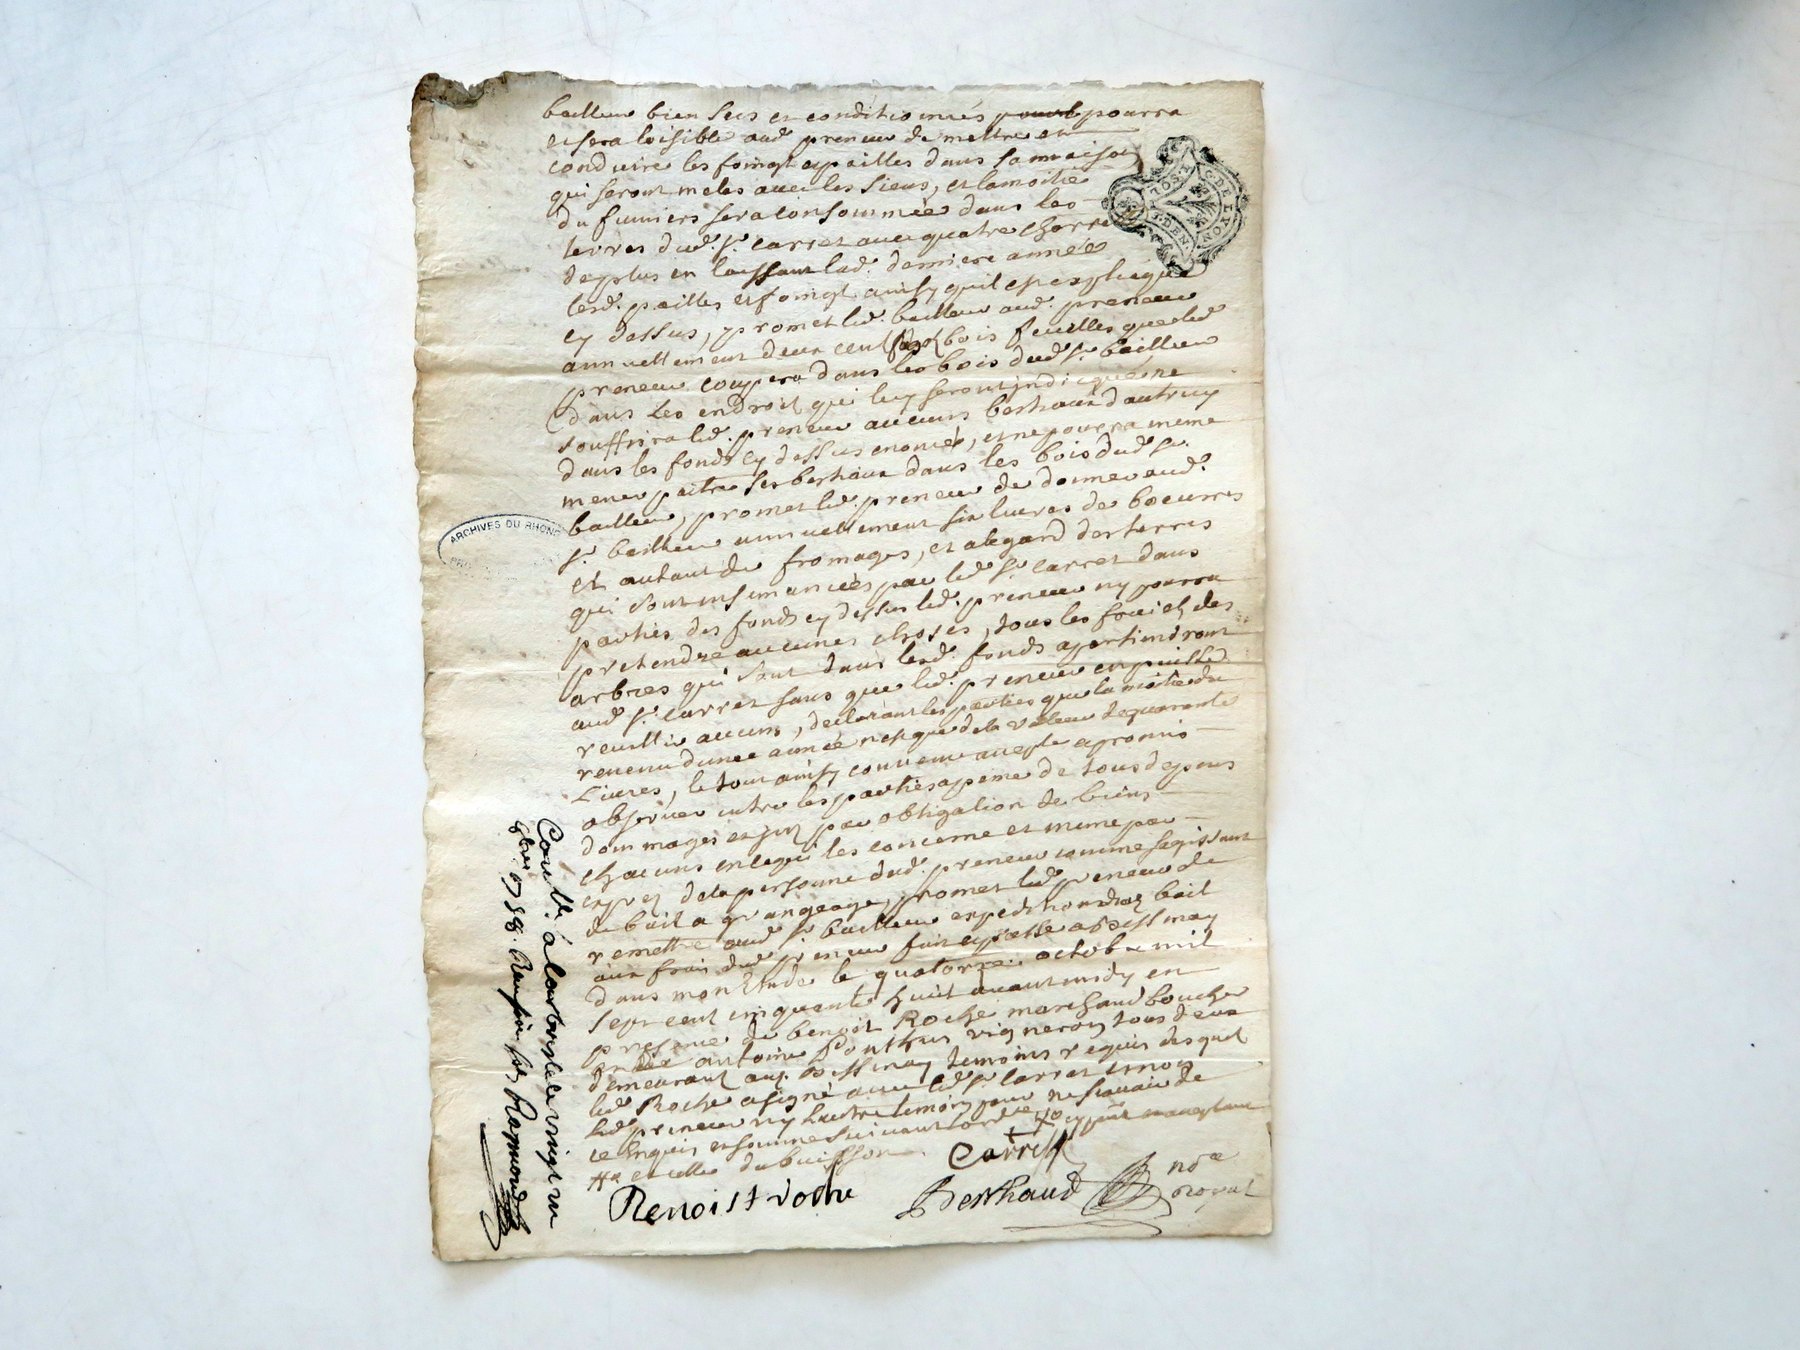 bailleur bien secs et conditionnés pourra
et sera loisible aud. preneur de mettre et
conduire les foingt et pailles dans sa maison
qui seront meles avec les siens, et la moitie
du fumiers sera consommée dans les
terres dud. sr. Carret avec quatre charre
de plus en laissant lad. derniere année
lesd. pailles et foingt ainsy quil est expliqué
cy dessus, promet led. bailleur aud. preneur
annuellement deux cent bois feuilles que led
preneur coupera dans les bois dud. sr. bailleur
dans les endroit qui luy seront indiqué, ne
souffrira led. preneur aucuns bestiaux dautruy
dans les fonds cy dessus enoncés, et ne pourra meme
mener paitre ses bestiaux dans les bois dud. sr.
bailleur, promet led. preneur de donner aud.
sr. bailleur annuellement six livres de boeurres
et autant de fromages, et alegard des terres
qui sont ensemancées par led. sr. Carret dans
parties des fonds cy dessus led. preneur ny pourra
pretendre aucunes choses, tous les fruict des
arbres qui sont dans lesd. fonds apartiendront
aud. sr. Carret sans que led. preneur en puisse
reuillir aucuns, declarant les parties que la moitie du
revenu dunee année nest que de la valeur de quarante
Livres, le tout ainsy convenu accepte apromis
observer entre les parties apeine de tous depens
dommages et par obligation de biens
chacuns en ce qui les concerne et meme par
de la personne dud. preneur comme sagissant
de bail a grangeage, promet led. preneur de
remettre aud. sr. bailleur expedition du bail
aux frais dud. preneur fait et passé a Bessenay
dans mon Etude le quatorze octobre mil
sept cent cinquante huit avant midy en
presence de benoit Roche marchand boucher
et de antoine Ponthus vigneron tous deux
demeurant aud. Bessenay temoins requis desquel
led. Roche a signé avec led. sr. Carret et moy
led. preneur ny lautre temoin pour ne scavoir de
ce Enquis et sommé suivant lord.re
et celle du buisson
Carret
Benoist roche
Berthaud
nore
royal
Con.llé à Larbresle le vingt un
8bre 1758. Reçu
Raymond
ARCHIVES DU RHONE
G. DE LYON